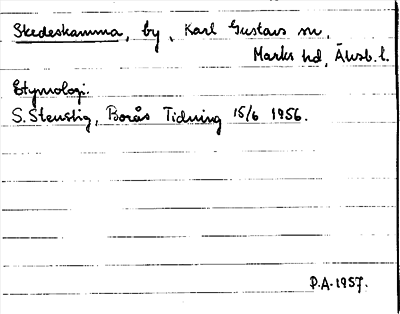 Skedeskamma, by, Karl Gustavs sn,
Marks hd, Älvsb. l.
Etymologi:
S. Stenstig, Borås Tidning 15/6 1956.
P.A. 1957.